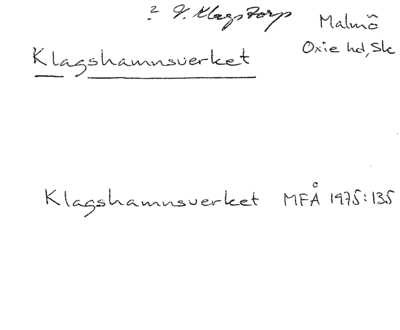 ? V. Klagstorp
Malmö
Oxie hd, Sk
Klagshamnsverket
Klagshamnsverket MFÅ 1975:135